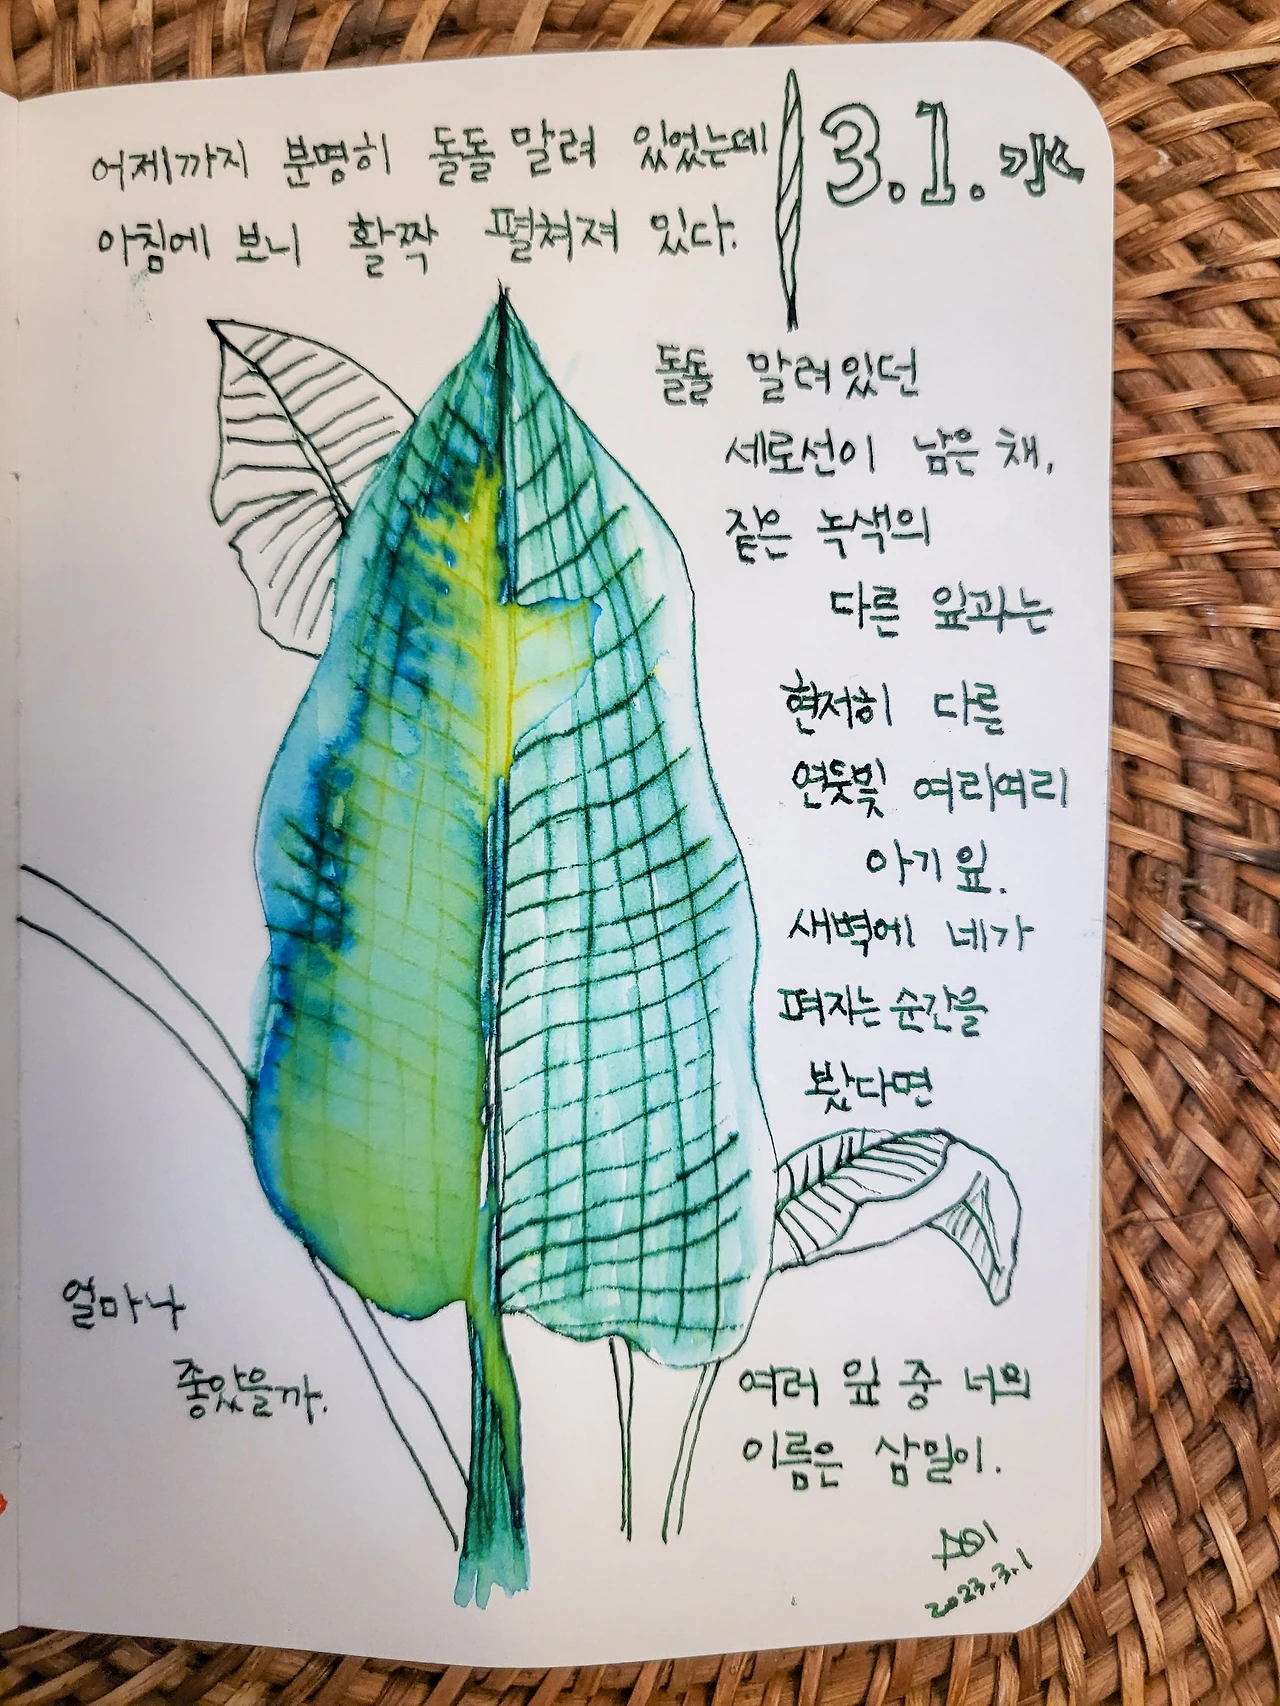 어제까지 분명히 돌돌 말려 있었는데
아침에 보니 활짝 펼쳐져 있다.
3.1. 水
돌돌 말려있던
세로선이 남은 채,
짙은 녹색의
다른 잎과는
현저히 다를
연둣빛 여리여리
아기잎.
새벽에 네가
펴지는 순간을
봤다면
얼마나
좋았을까.
여러 잎 중 너의
이름은 삼밀이.
2023.3.1